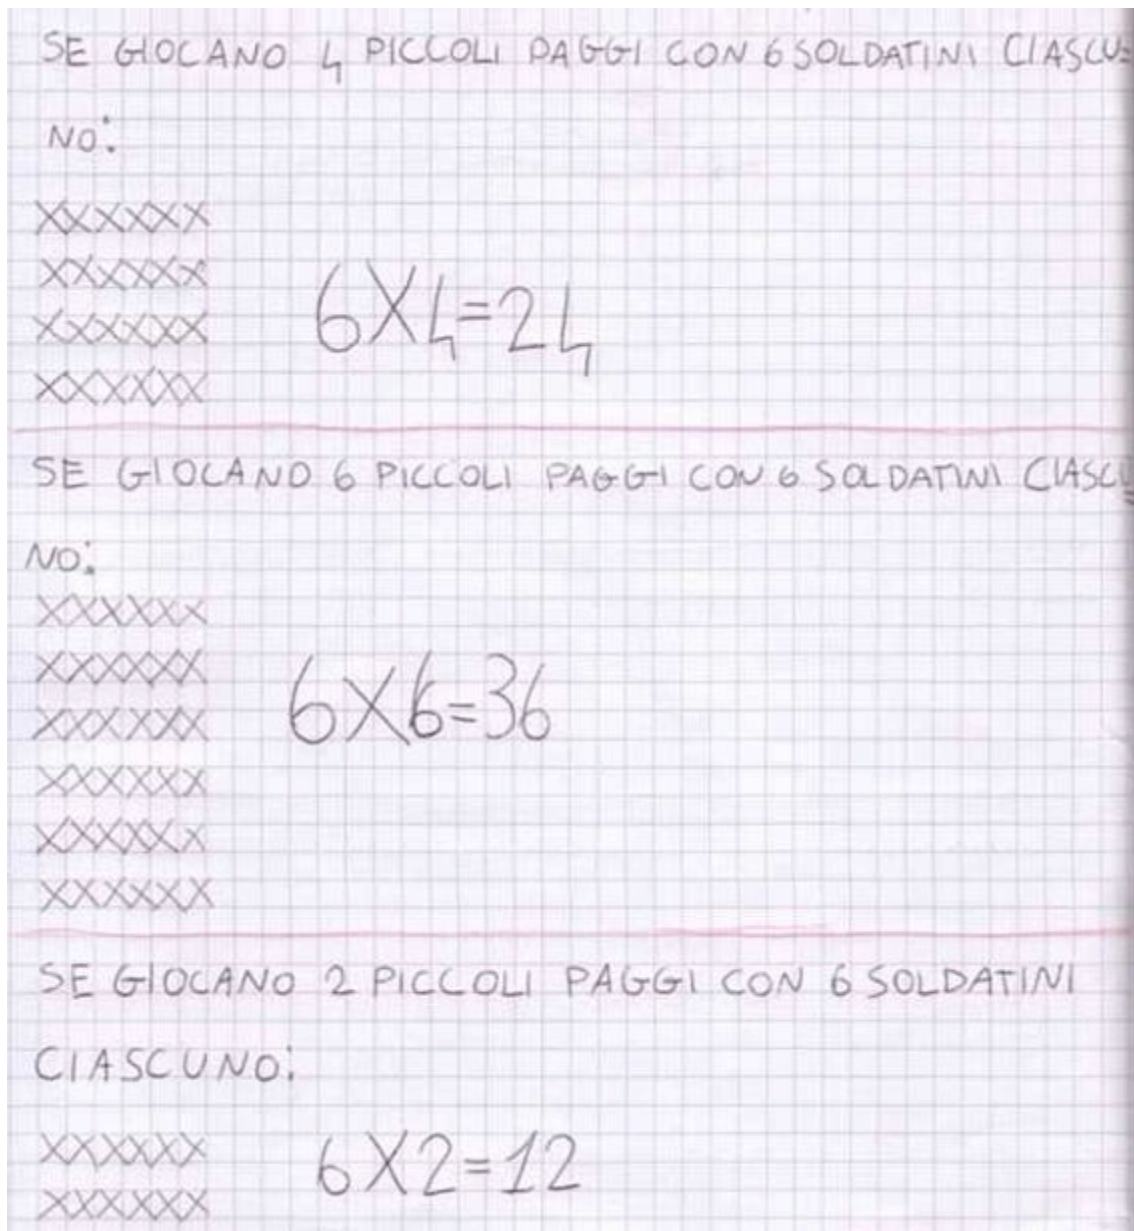 SE GIOCANO 4 PICCOLI PAGGI CON 6 SOLDATINI CIASCU=
NO:
XXXXXX
XXXXXX
XXXXXX
XXXXXX
6X4=24
SE GIOCANO 6 PICCOLI PAGGI CON 6 SOLDATINI CIASCU=
NO:
XXXXXX
XXXXXX
XXXXXX
XXXXXX
XXXXXX
XXXXXX
6X6=36
SE GIOCANO 2 PICCOLI PAGGI CON 6 SOLDATINI
CIASCUNO:
XXXXXX
XXXXXX
6X2=12